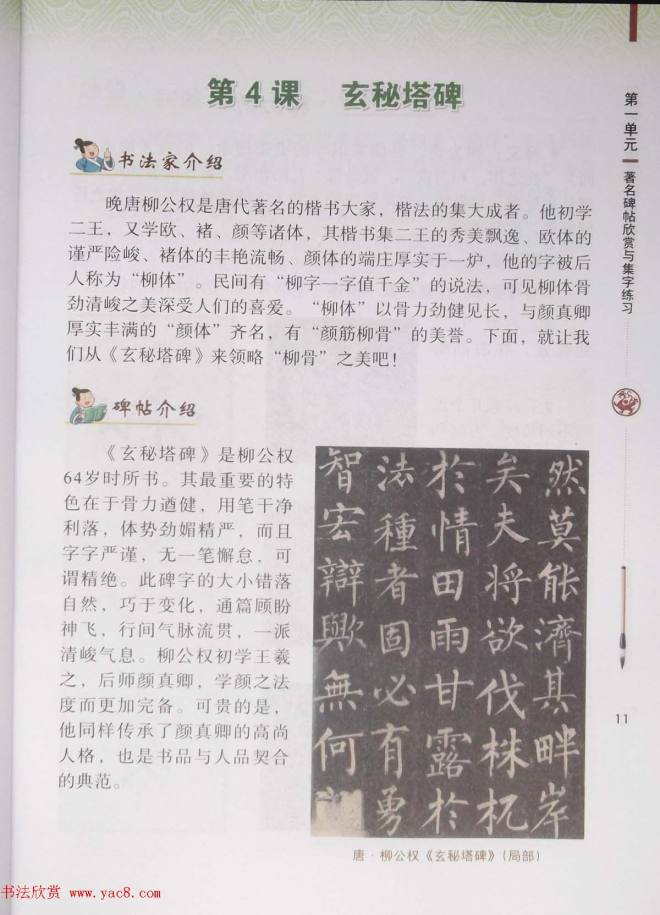 第4课 玄秘塔碑
书法家介绍
晚唐柳公权是唐代著名的楷书大家，楷法的集大成者。他初学
二王，又学欧、褚、颜等诸体，其楷书集二王的秀美飘逸、欧体的
谨严险峻、褚体的丰艳流畅、颜体的端庄厚实于一炉，他的字被后
人称为“柳体”。民间有“柳字一字值千金”的说法，可见柳体骨
劲清峻之美深受人们的喜爱。“柳体”以骨力劲健见长，与颜真卿
厚实丰满的“颜体”齐名，有“颜筋柳骨”的美誉。下面，就让我
们从《玄秘塔碑》来领略“柳骨”之美吧！
碑帖介绍
《玄秘塔碑》是柳公权
64岁时所书。其最重要的特
色在于骨力遒健，用笔干净
利落，体势劲媚精严，而且
字字严谨，无一笔懈怠，可
谓精绝。此碑字的大小错落
自然，巧于变化，通篇顾盼
神飞，行间气脉流贯，一派
清峻气息。柳公权初学王羲
之，后师颜真卿，学颜之法
度而更加完备。可贵的是，
他同样传承了颜真卿的高尚
人格，也是书品与人品契合
的典范。
然莫能濟其畔岸
矣夫將欲伐株杌
於情田雨甘露於
法種者固必有勇
智宏辯歟無何
唐·柳公权《玄秘塔碑》（局部）
第一单元
著名碑帖欣赏与集字练习
11
书法欣赏 www.yac8.com